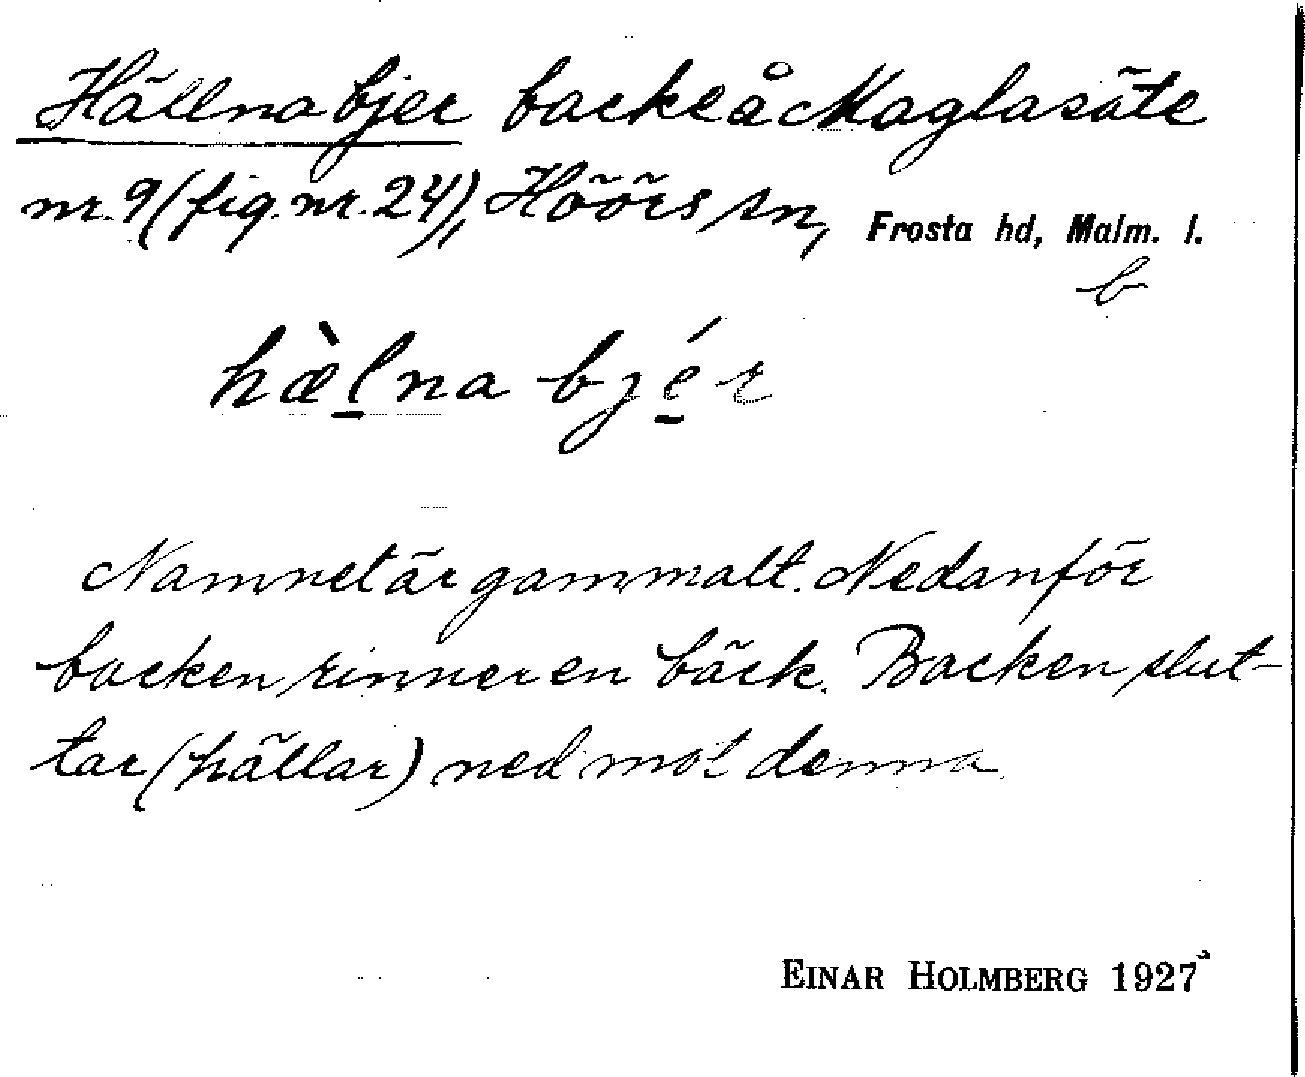 Hällnabjer backe å Maglasäte
nr. 9 (fig. nr. 24), Höörs sn, Frosta hd, Malm. l.
b
hæ̀lna bjér
Namnet är gammalt. Nedanför
backen rinner en bäck. Backen slut-
tar (hällar) ned mot denna
EINAR HOLMBERG 1927